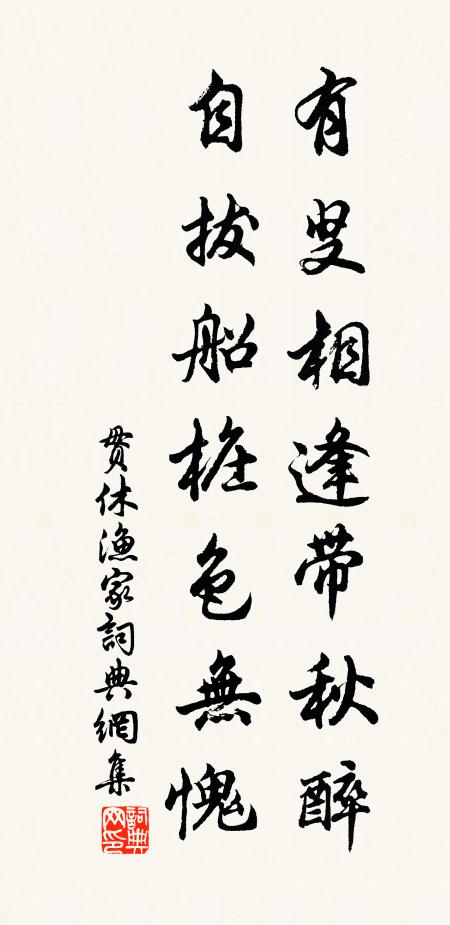 有叟相逢带秋醉
自拔船桩色無愧
贯休渔家詞典網集
詞典网印